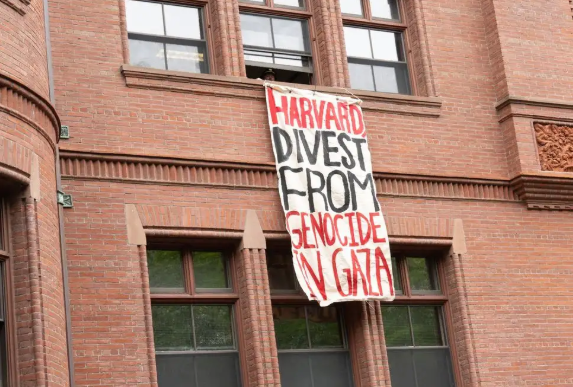 HARVARD
DIVEST
FROM
GENOCIDE
IN GAZA